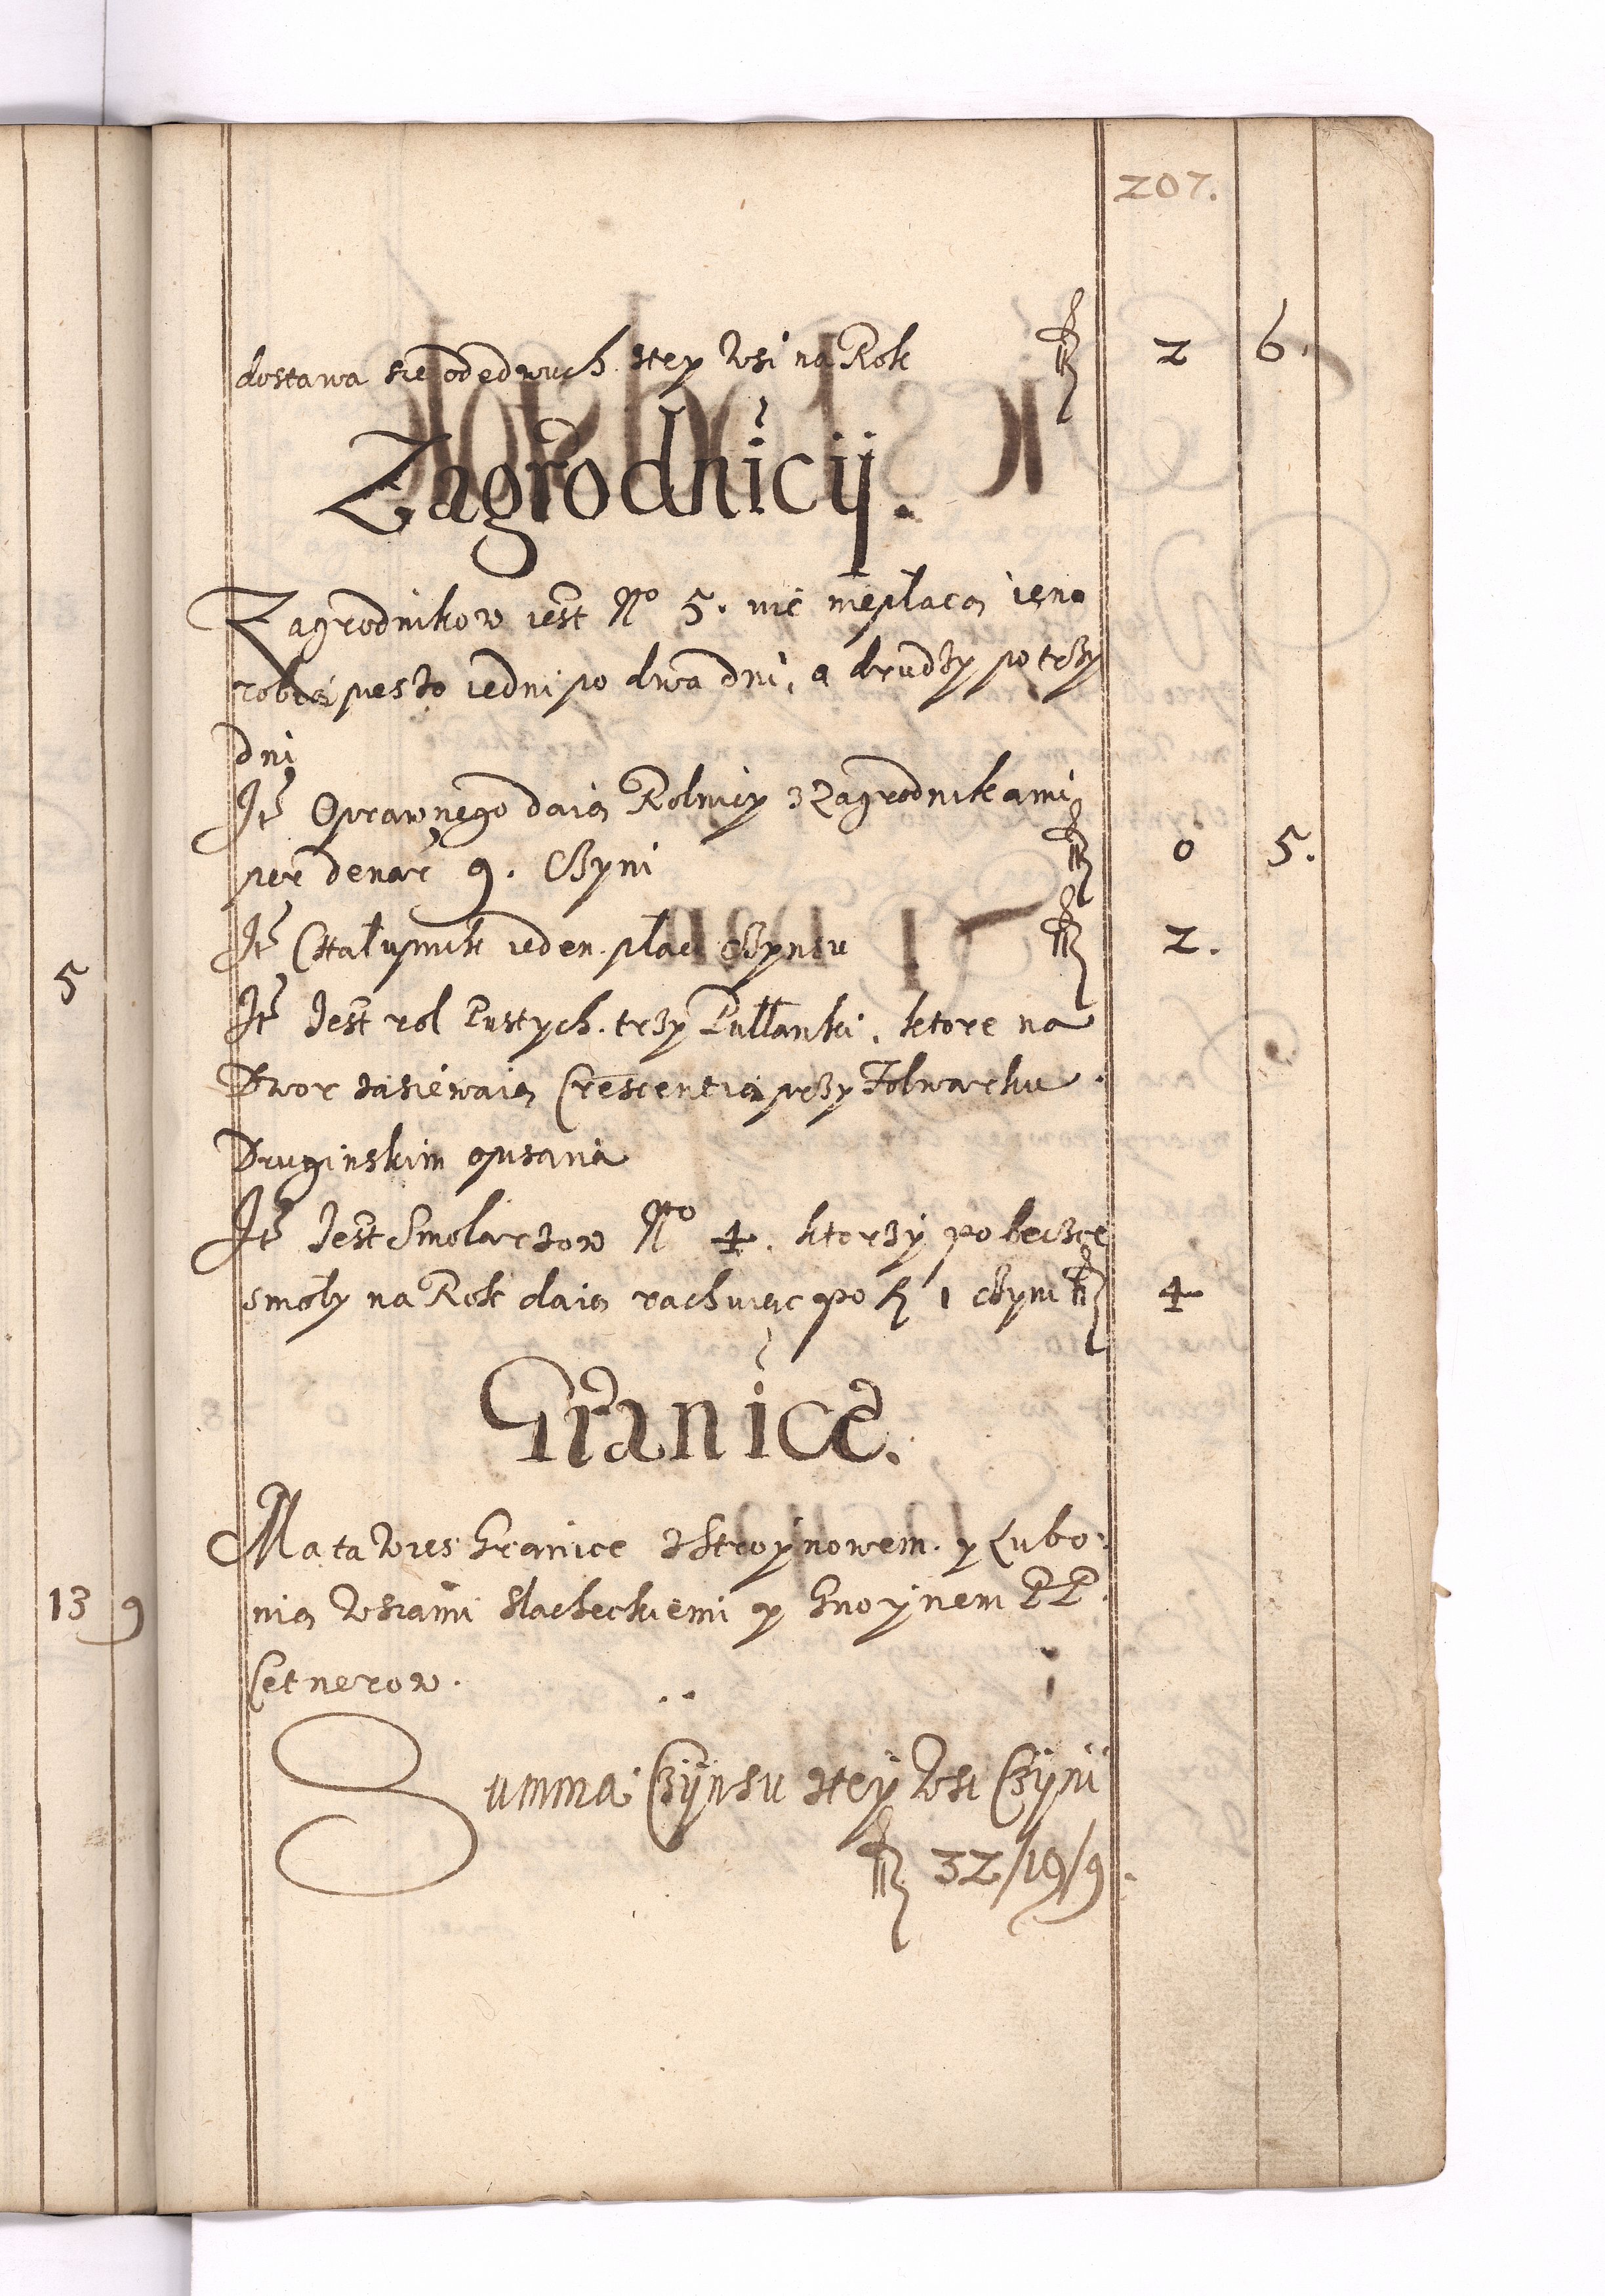 207.
dostawa się ododwuch stey wsi na Rok fl 2 6.
Zagrodnicÿ.
Zagrodnikow iest No 5. nic niepłacą ieno
robią pieszo iedni po dwa dni, a drudzy po trzy
dni
Itē Oprawnego daią Rolnicy z Zagrodnikami
per denar 9. Czyni fl 0 5.
Itē Chałupnik ieden płaci Czynsu fl 2.
Itē Jest rol Pustych trzy Pułłanki, ktore na
Dwor zasiewaią Crescentia przy Folwarku
Druginskim opisana
Itē Jest Smolarzow No 4. ktorzy po beczce
smoły na Rok daią rachuiąc po fl 1 czyni fl 4
Granice.
Ma ta Wies Granice z Stroynowem y Lubo:
nią Wsiami Slacheckiemi y Gnoynem PP.
Cetnerow.
Summa Czÿnsu stey Wsi Czÿni
fl 32/19/9.
5
13 9